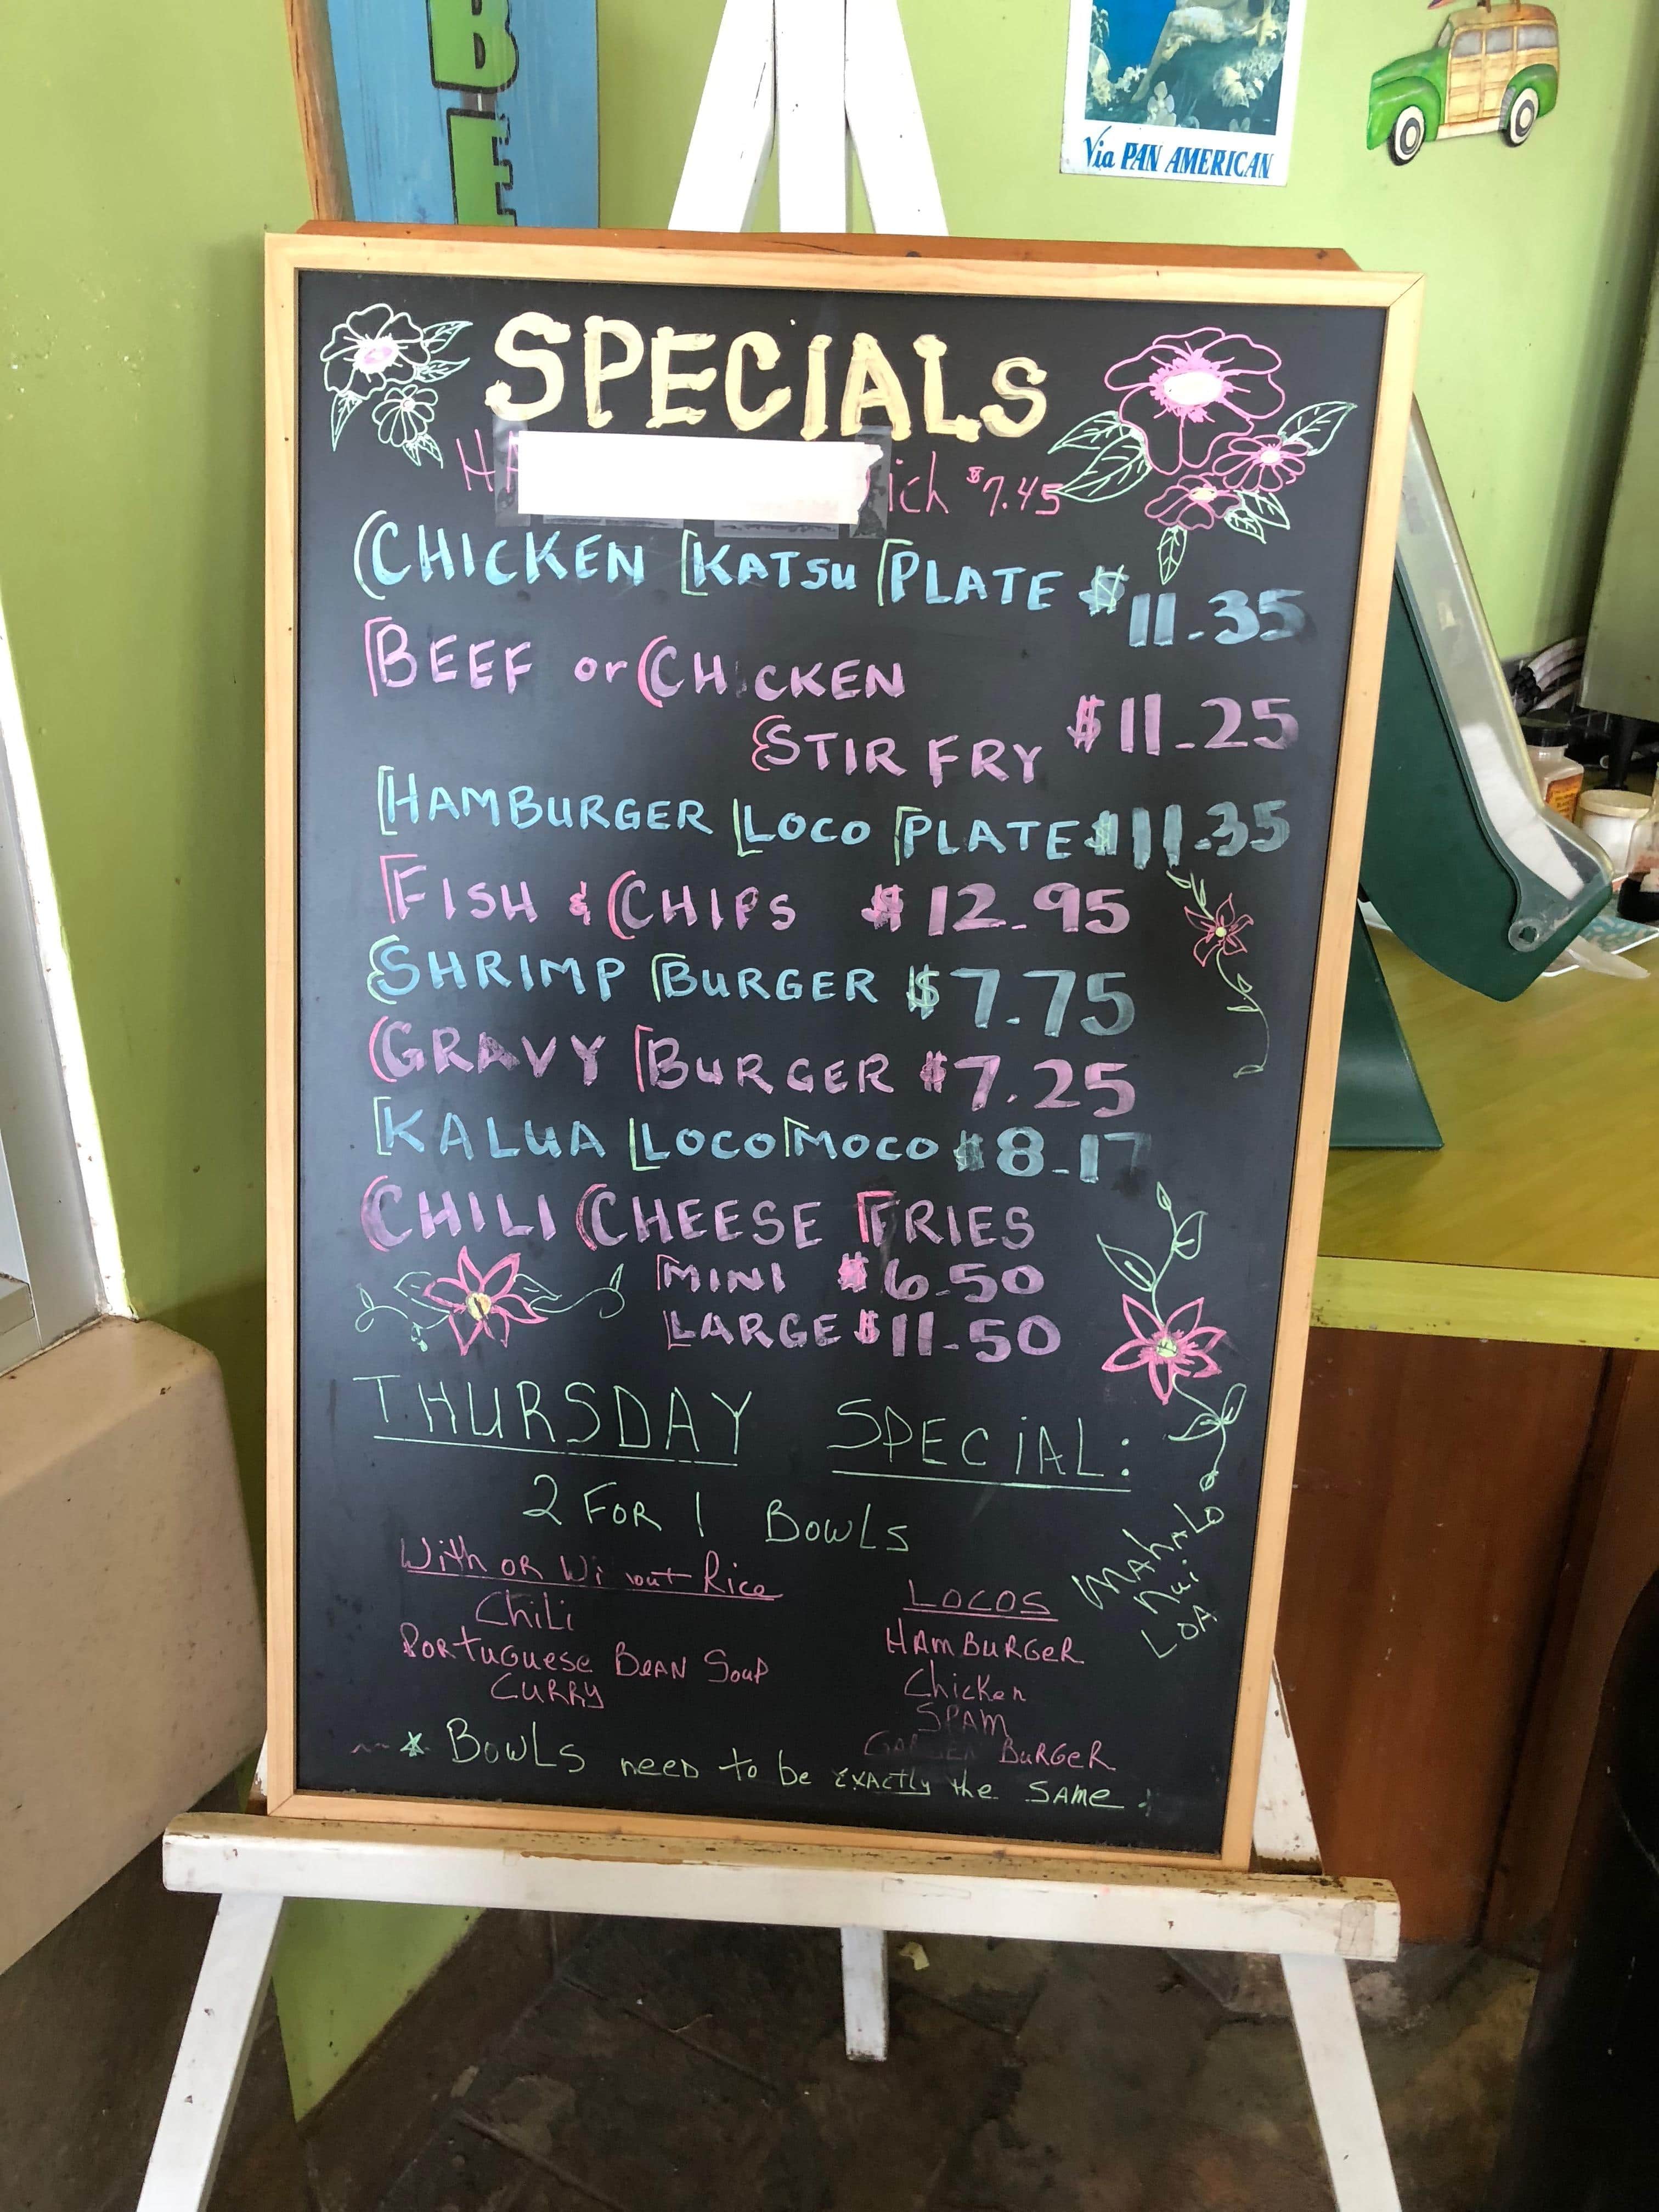 BE
Via PAN AMERICAN
SPECIALS
$7.45
CHICKEN KATSU PLATE $11.35
BEEF or CHICKEN
STIR FRY $11.25
HAMBURGER LOCO PLATE $11.35
FISH & CHIPS $12.95
SHRIMP BURGER $7.75
GRAVY BURGER $7.25
KALUA LOCO MOCO $8.17
CHILI CHEESE FRIES
MINI $6.50
LARGE $11.50
THURSDAY SPECiAL:
2 FOR 1 BOWLS
With OR Wi out Rice
ChiLi
PORtuguese BEAN Soup
CURRY
LOCOS
HAMBURGER
Chicken
SPAM
GARDEN BURGER
MAhALO
nui
LOA
* BOWLS need to be EXACTLY the SAME.